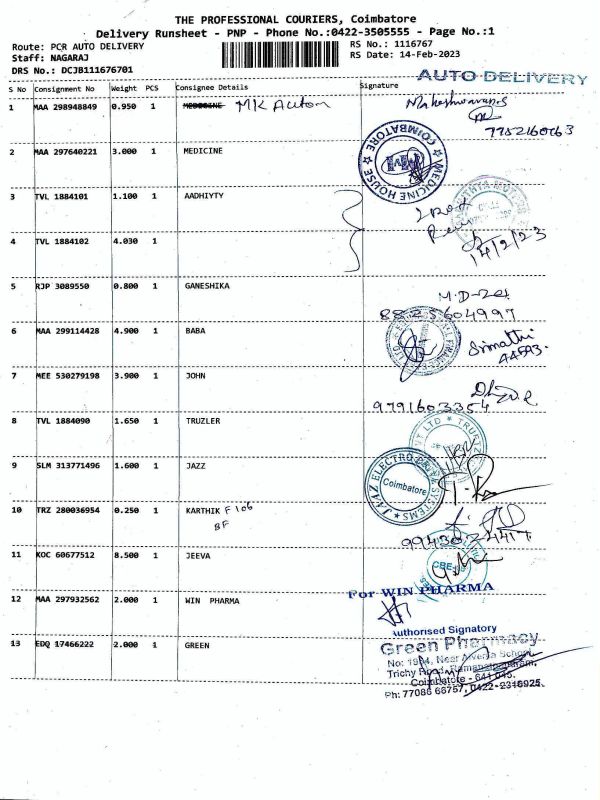 THE PROFESSIONAL COURIERS, Coimbatore
Delivery Runsheet - PNP - Phone No.:0422-3505555 - Page No.:1
Route: PCR AUTO DELIVERY
Staff: NAGARAJ
DRS No.: DCJB111676701
RS No.: 1116767
RS Date: 14-Feb-2023
AUTO DELIVERY
S No Consignment No Weight PCS Consignee Details Signature
1 MAA 298948849 0.950 1 MEDICINE MK Auton
Maheshwaran.S
7752160063
2 MAA 297640221 3.000 1 MEDICINE
MEDICINE HOUSE ★ COIMBATORE ★
3 TVL 1884101 1.100 1 AADHIYTY
2 Box
14/2/23
4 TVL 1884102 4.030 1
5 RJP 3089550 0.800 1 GANESHIKA
8825604997
6 MAA 299114428 4.900 1 BABA
Srimathi
7 MEE 530279198 3.900 1 JOHN
9791603354
8 TVL 1884090 1.650 1 TRUZLER
9 SLM 313771496 1.600 1 JAZZ
Coimbatore
10 TRZ 280036954 0.250 1 KARTHIK F 106
BF
9943022417
11 KOC 60677512 8.500 1 JEEVA
12 MAA 297932562 2.000 1 WIN PHARMA
For WIN PHARMA
Authorised Signatory
13 EDQ 17466222 2.000 1 GREEN
Green Pharmacy
No: 19/4, Near Alvernia School,
Trichy Road, Ramanathapuram,
Coimbatore - 641 045.
Ph: 77086 66757, 0422-2316925.